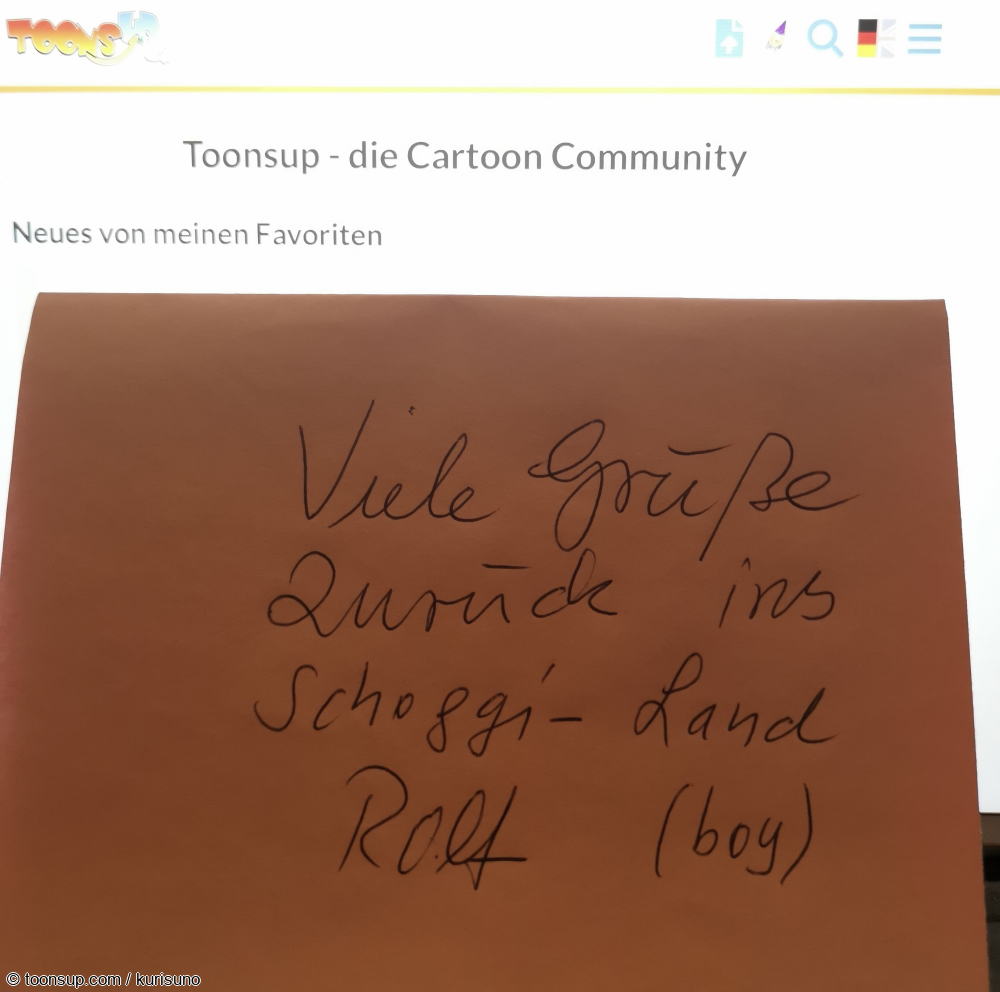 TOONSUP
Toonsup - die Cartoon Community
Neues von meinen Favoriten
Viele Grüße
Zurück ins
Schoggi-Land
Rolf (boy)
© toonsup.com / kurisuno